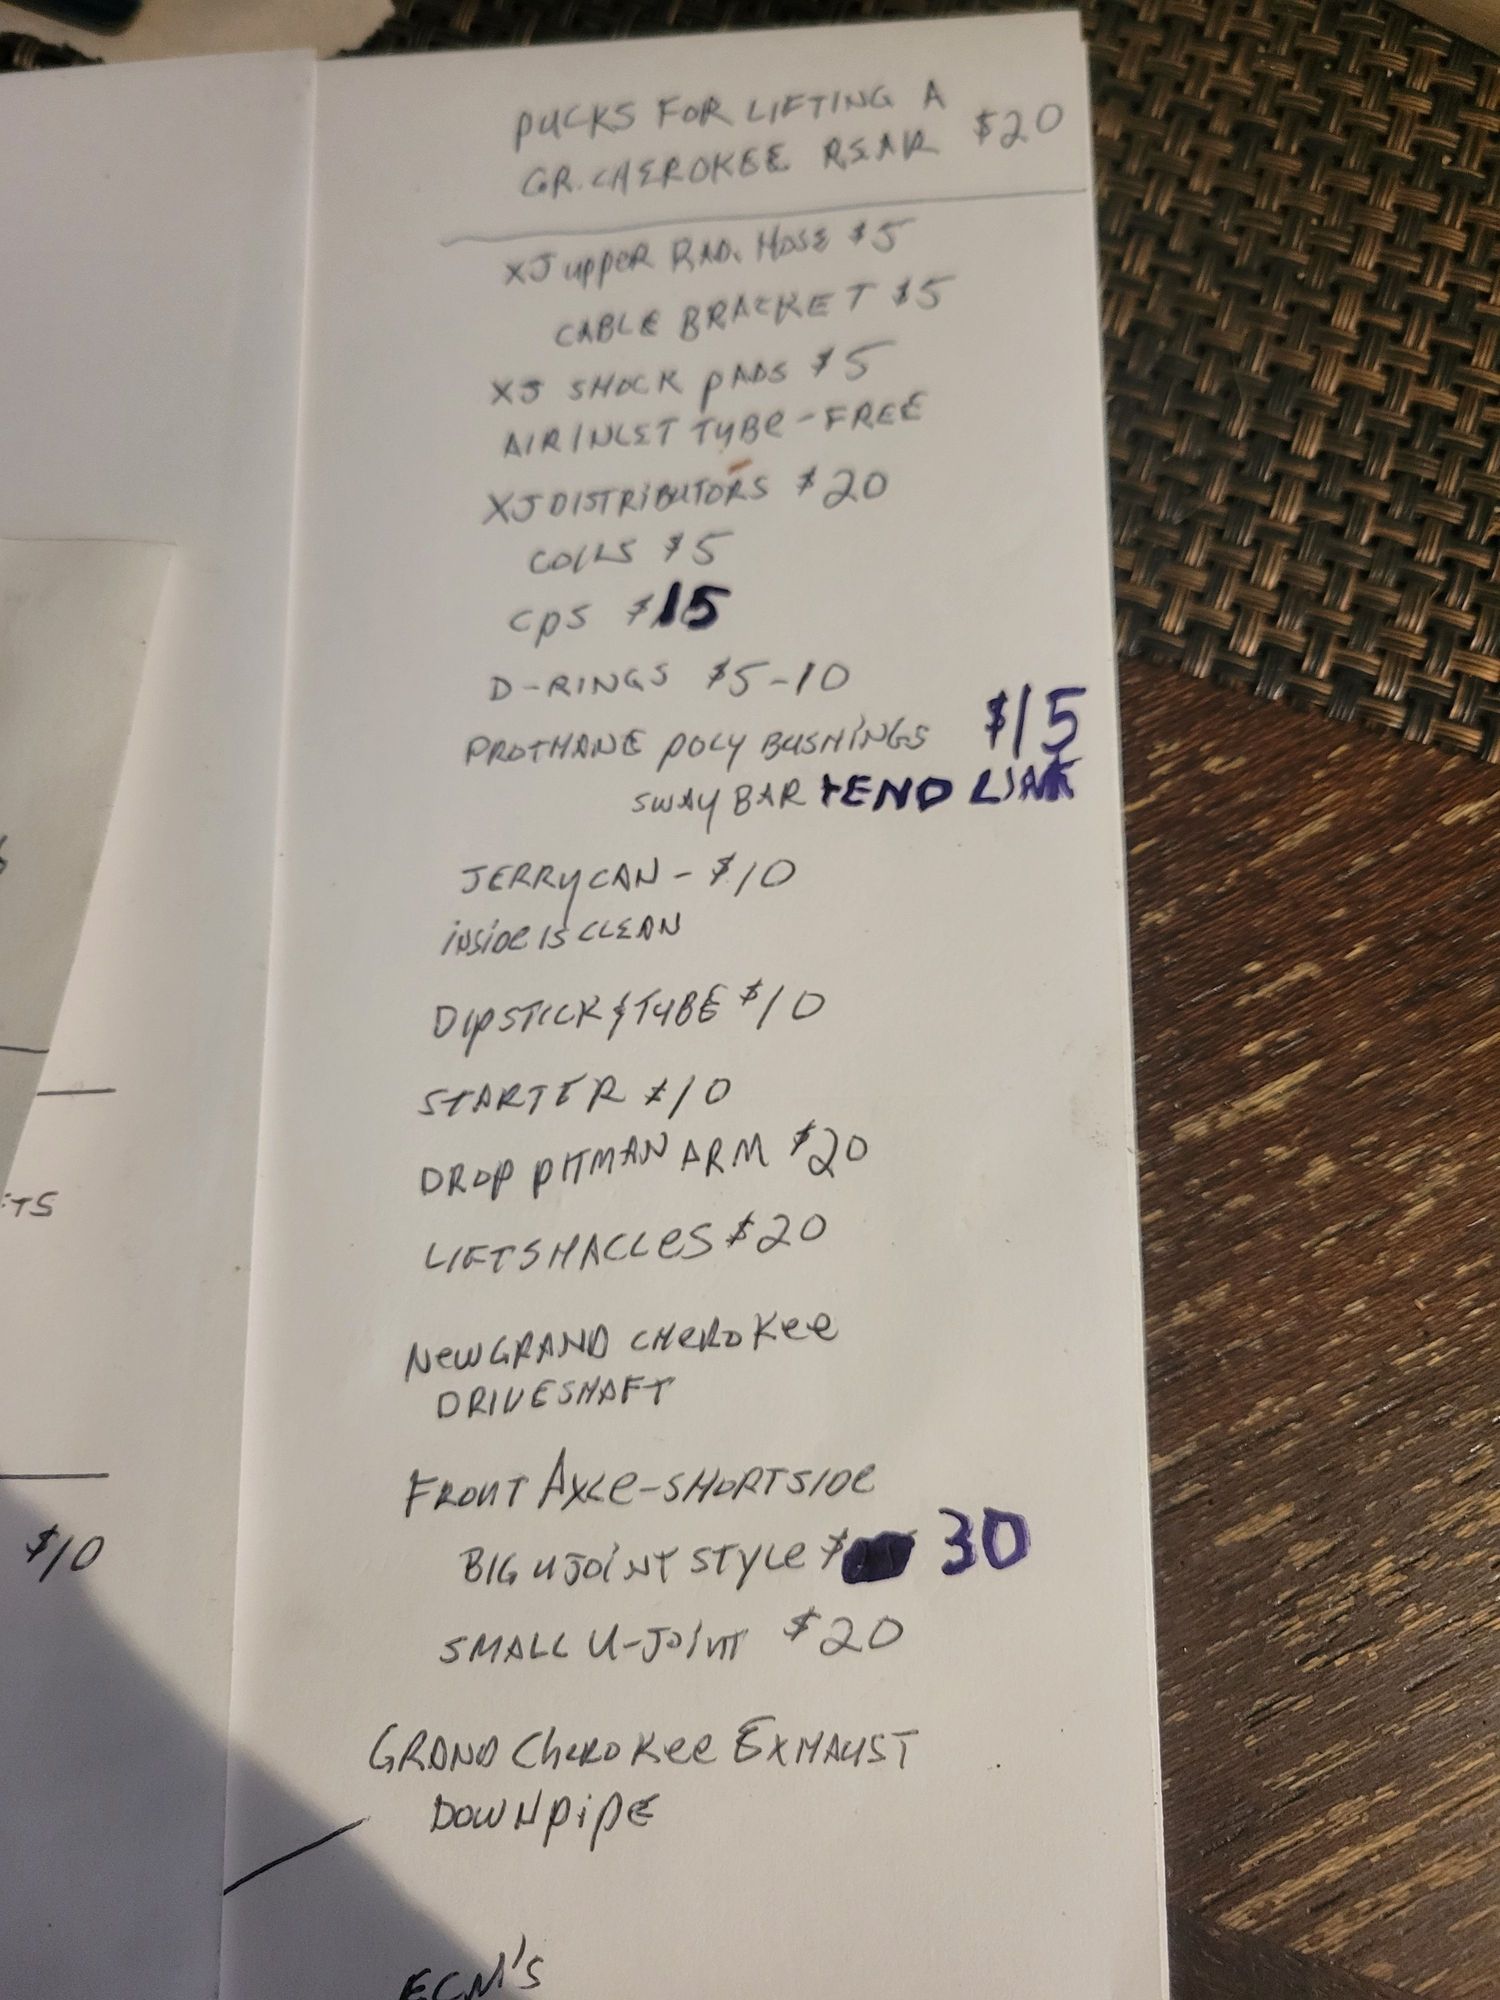 PUCKS FOR LIFTING A
GR. CHEROKEE REAR $20
XJ UPPER RAD. HOSE $5
CABLE BRACKET $5
XJ SHOCK PADS $5
AIR INLET TUBE - FREE
XJ DISTRIBUTORS $20
COILS $5
CPS $15
D-RINGS $5-10
PROTHANE POLY BUSHINGS $15
SWAY BAR + END LINK
JERRY CAN - $10
INSIDE IS CLEAN
DIPSTICK & TUBE $10
STARTER $10
DROP PITMAN ARM $20
ETS
LIFT SHACLES $20
NEW GRAND CHEROKEE
DRIVESHAFT
FRONT AXLE - SHORTSIDE
$10
BIG U JOINT STYLE $ 30
SMALL U-JOINT $20
GRAND CHEROKEE EXHAUST
DOWNPIPE
ECM'S